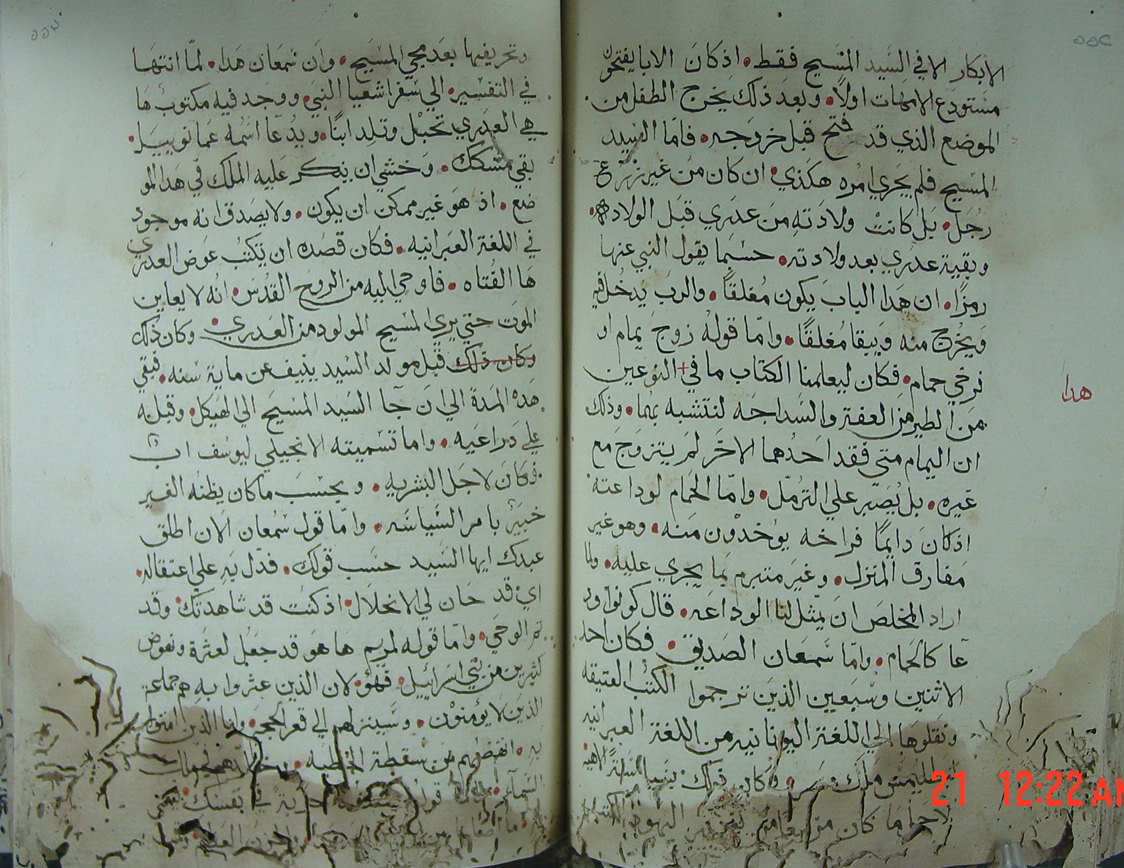 الابكار الا في السيد المسيح فقط. اذ كان الابا يفتحون
مستودع الامهات اولاً. وبعد ذلك يخرج الطفل من
الموضع الذي قد فتح قبل خروجه. فاما السيد
المسيح فلم يجري امره هكذي. ان كان من غير زرع
رجل. بل كانت ولادته من عدري قبل الولاده.
وبقية عدري بعد ولادته. حسبما يقول النبي عنها
رمزاً. ان هدا الباب يكون مغلقاً. والرب يدخل فيه
ويخرج منه ويبقا مغلقاً. واما قوله زوج يمام او
فرخي حمام. فكان ليعلمنا الكتاب ما في النوعين
هدا
من الطير من العفة والسداجه لنتشبه بهما. وذلك
ان اليمام متى فقد احدهما الاخر لم يتزوج مع
غيره. بل يصبر علي الترمل. واما الحمام لوداعته
اذ كان دايماً فراخه يوخدون منه. وهو غير
مفارق المنزل. وغير متبرم بما يجري عليه. ولما
اراد المخلص ان يمثل لنا الوداعه. قال كونوا ود
عا كالحمام. واما سمعان الصديق. فكان احد
الاتنين وسبعين الذين ترجموا الكتب العتيقه
ونقلوها الي اللغة اليونانيه من اللغة العبرانيه
ملك مصر. وكان ذلك
لاجل ما كان مزمعا
وتحريفها بعد مجي المسيح. وان سمعان هدا. لما انتها
في التفسير. الي سفر اشعيا النبي. ووجد فيه مكتوب ها
هي العدري تحبل وتلد ابناً. ويدعا اسمه عمانوييل.
بقي متشكك. وخشي ان ينكر عليه الملك في هدا المو
ضع. اذ هو غير ممكن ان يكون. ولا يصدق انه موجود
في اللغة العبرانيه. فكان قصده ان يكتب عوض العدري
ها الفتاه. فاوحي اليه من الروح القدس. انه لا يعاين
الموت حتي يري المسيح المولود من العدري. وكان ذلك
وكان ذلك قبل مولد السيد ينيف عن ماية سنه. فبقي
هده المدة الي ان جا السيد المسيح الي الهيكل. وقبله
علي دراعيه. واما تسميته الانجيلي ليوسف اب
فكان لاجل البشريه. وبحسب ما كان يظنه الغير
خبير بامر السياسه. واما قول سمعان الان اطلق
عبدك ايها السيد حسب قولك. فدل به علي اعتقاله.
اي قد حان لي الانحلال. اذ كنت قد شاهدتك. وقد
تم الوحي. واما قوله لمريم ها هو قد جعل لعثرة ونهوض
كثيرين من بني اسراييل. فهو. لان الذين عثروا به هم جماعة
الذين لا يومنون. وسينزلهم الي قعر الجحيم. واما الذين امنوا
به. انهضهم من سقطة الخطيه.
في نفسك
21 12:22 AM